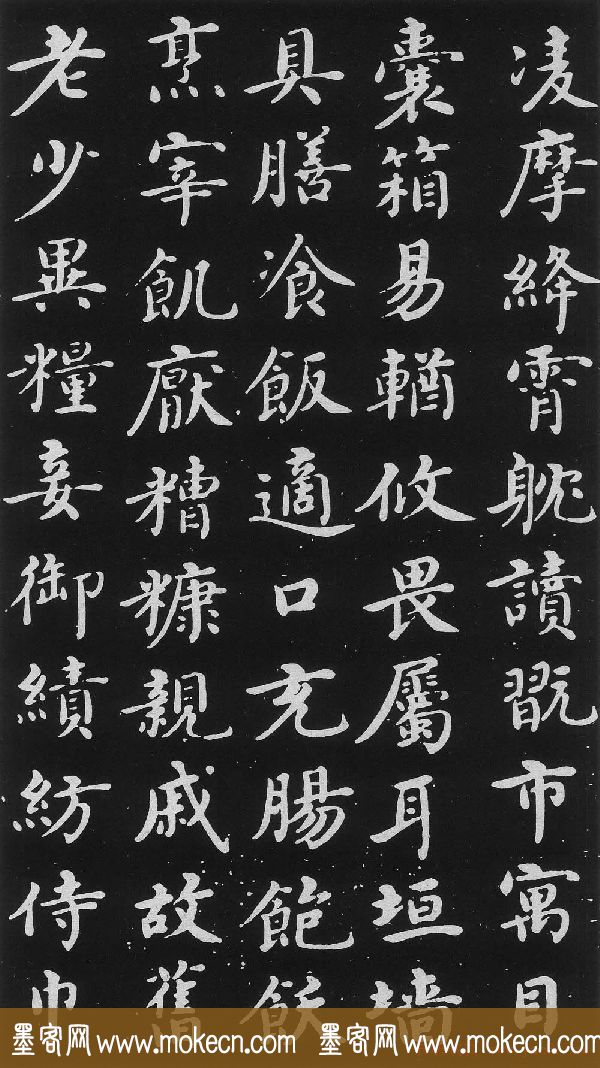 凌摩絳霄躭讀翫市寓目
囊箱易輶攸畏屬耳垣墻
具膳飡飯適口充腸飽飫
烹宰飢厭糟糠親戚故舊
老少異糧妾御績紡侍巾
墨客网 www.mokecn.com 墨客网 www.mokecn.com